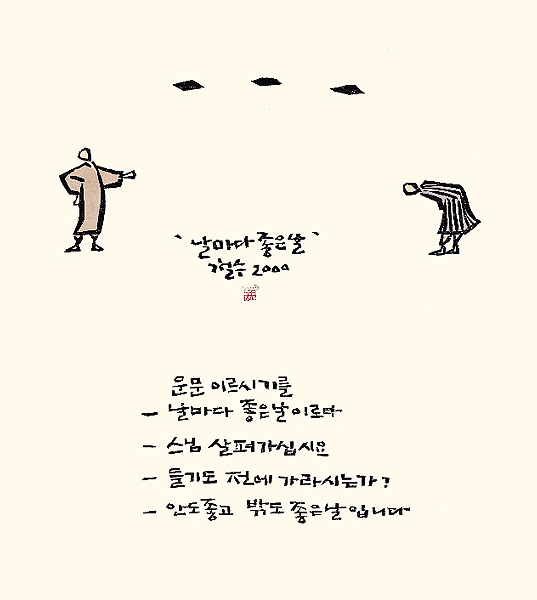 '날마다 좋은날'
철수 2000
운문 이르시기를
— 날마다 좋은날이로다
— 스님 살펴가십시오
— 들기도 전에 가라시는가?
— 안도좋고 밖도 좋은날입니다